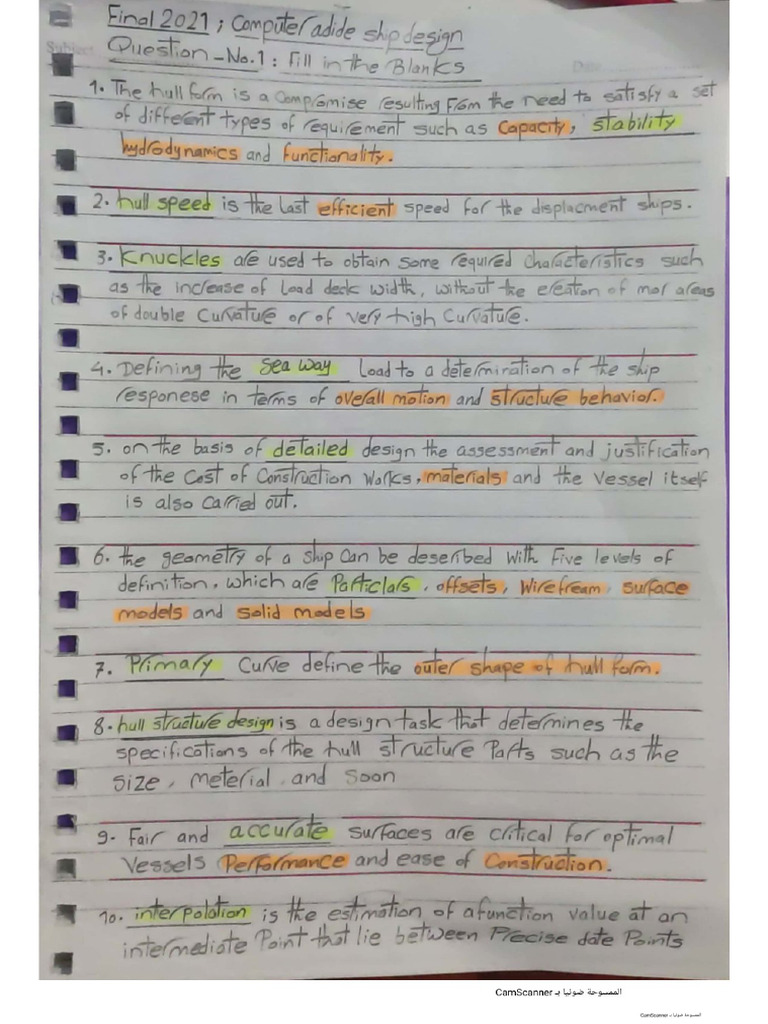 Final 2021 ; Computer adide ship design
Subject
Date
Question - No.1 : Fill in the Blanks
1. The hull form is a compromise resulting from the need to satisfy a set
of different types of requirement such as Capacity, stability
hydrodynamics and functionality.
2. hull speed is the last efficient speed for the displacment ships.
3. Knuckles are used to obtain some required characteristics such
as the increase of load deck width, without the creation of mor areas
of double curvature or of very high curvature.
4. Defining the sea way Load to a determiration of the ship
responese in terms of overall motion and structure behavior.
5. on the basis of detailed design the assessment and justification
of the cost of construction works, materials and the vessel itself
is also carried out.
6. the geometry of a ship can be deseribed with five levels of
definition, which are Particlars, offsets, Wirefream, surface
models and solid models
7. Primary Curve define the outer shape of hull form.
8. hull structure design is a design task that determines the
specifications of the hull structure Parts such as the
size, meterial, and soon
9. Fair and accurate surfaces are critical for optimal
vessels Performance and ease of Construction.
10. interpolation is the estimation of a function value at an
intermediate Point that lie between Precise date Points
الممسوحة ضوئيا بـ CamScanner
الممسوحة ضوئيا بـ CamScanner